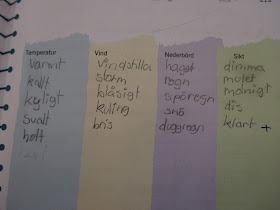 Temperatur
varmt
kallt
kyligt
svalt
hett
Vind
vindstilla
storm
blåsigt
kuling
bris
Nederbörd
hagel
regn
spöregn
snö
duggregn
Sikt
dimma
mulet
molnigt
dis
klart +